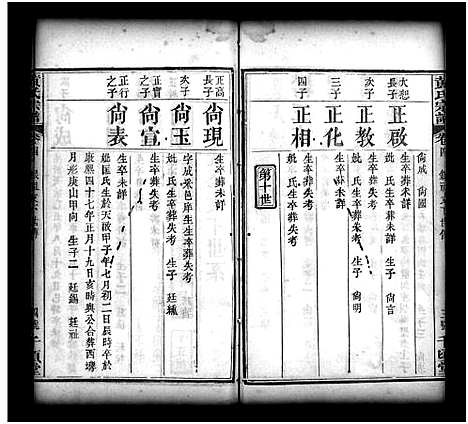 黃氏宗譜
尚成 尚國
大恕長子
正啟
生卒葬失考
妣 氏生卒葬失考 生子 尚言
次子
正教
生卒葬失考
妣 氏生卒葬失考 生子 尚明
三子
正化
生卒未詳
妣 氏生卒葬失考
四子
正相
生卒葬失考
妣 氏生卒葬失考
第十世
正高長子
尚現
生卒葬未詳
字成 邑庠生生卒葬失考
次子
尚玉
妣 氏生卒葬失考 生子 廷
正寶之子
尚宣
生卒葬未詳
妣 氏生卒葬失考
正行之子
尚表
生卒未詳
妣 氏生於天啟甲子年七月初二日辰時卒於
康熙四十七年正月十九亥時與公合葬西
月形庚山甲向 生子二 廷錫 廷祉
黃氏宗譜